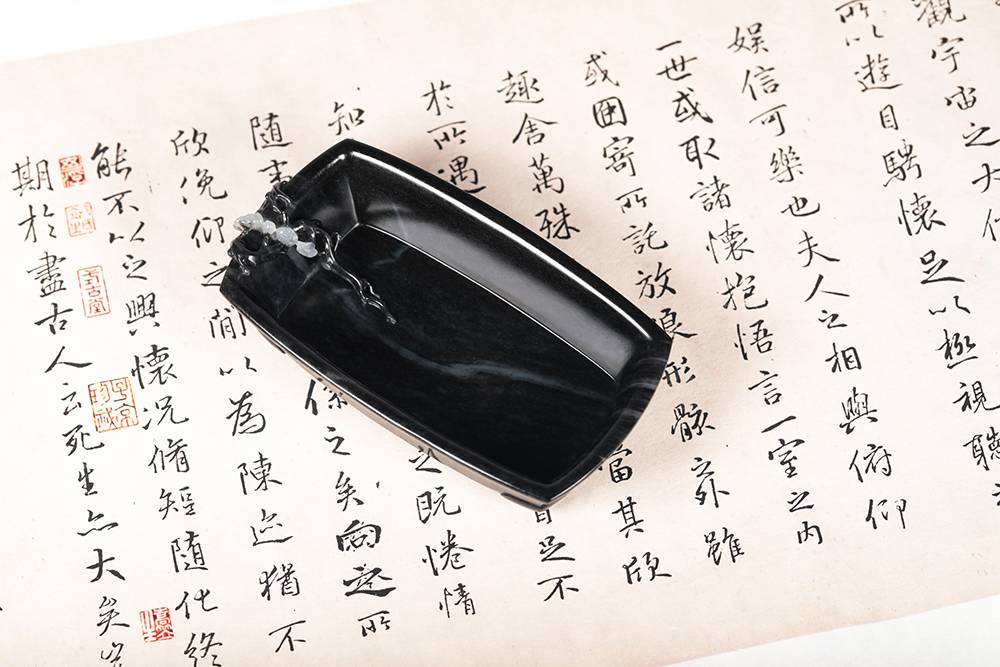 觀宇宙之大
所以遊目騁懷足以極視聽
娛信可樂也夫人之相與俯仰
一世或取諸懷抱悟言一室之内
或因寄所託放浪形骸之外雖
趣舍萬殊當其欣
於所遇自足不
知之既惓情
隨事係之矣向之所
欣俛仰之間以為陳迹猶不
能不以之興懷況脩短隨化終
期於盡古人云死生亦大矣豈
式古堂
子京珍藏